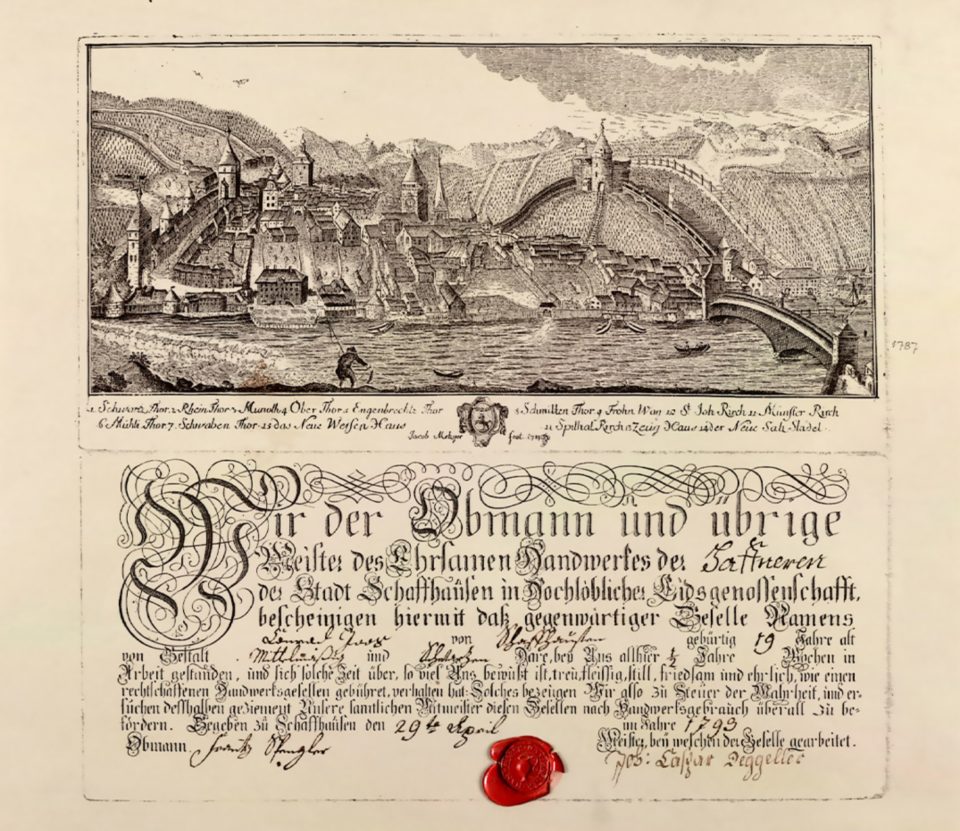 1787
1. Schwartz Thor 2 Rhein Thor 3 Munoth 4 Ober Thor 5 Engenbrechts Thor
6 Mühli Thor 7. Schwaben Thor 15 das Neue Weisen Haus
8 Schmitten Thor 9 Frohn Wag 10 St Joh Kirch 11 Münster Kirch
12 Spithal Kirch 13 Zeug Haus 14 der Neue Saltz Stadel.
Jacob Metzger fect.
Wir der Obmann und übrige
Meister des Ehrsamen Handwerkes der
der Stadt Schaffhausen in Hochlöblicher Eidsgenossenschafft,
bescheinigen hiermit daß gegenwärtiger Geselle Namens
von Schaffhausen gebürtig 19 Jahre alt
von Gestalt und Hare, bey Uns allhier ½ Jahre Wochen in
Arbeit gestanden, und sich solche Zeit über, so viel Uns bewußt ist, treu, fleissig, still, friedsam und ehrlich, wie einem
rechtschaffenen Handwerksgesellen gebühret, verhalten hat. Solches bezeugen Wir also zu Steuer der Wahrheit, und er-
suchen desshalben geziement Unsere samtlichen Mitmeister diesen Gesellen nach Handwerksgebrauch überall zu be-
fördern. Gegeben zu Schaffhausen den 29te April im Jahre 1793
Obmann Frantz Meister, bey welchem der Geselle gearbeitet.
Joh: Caspar Deggeller